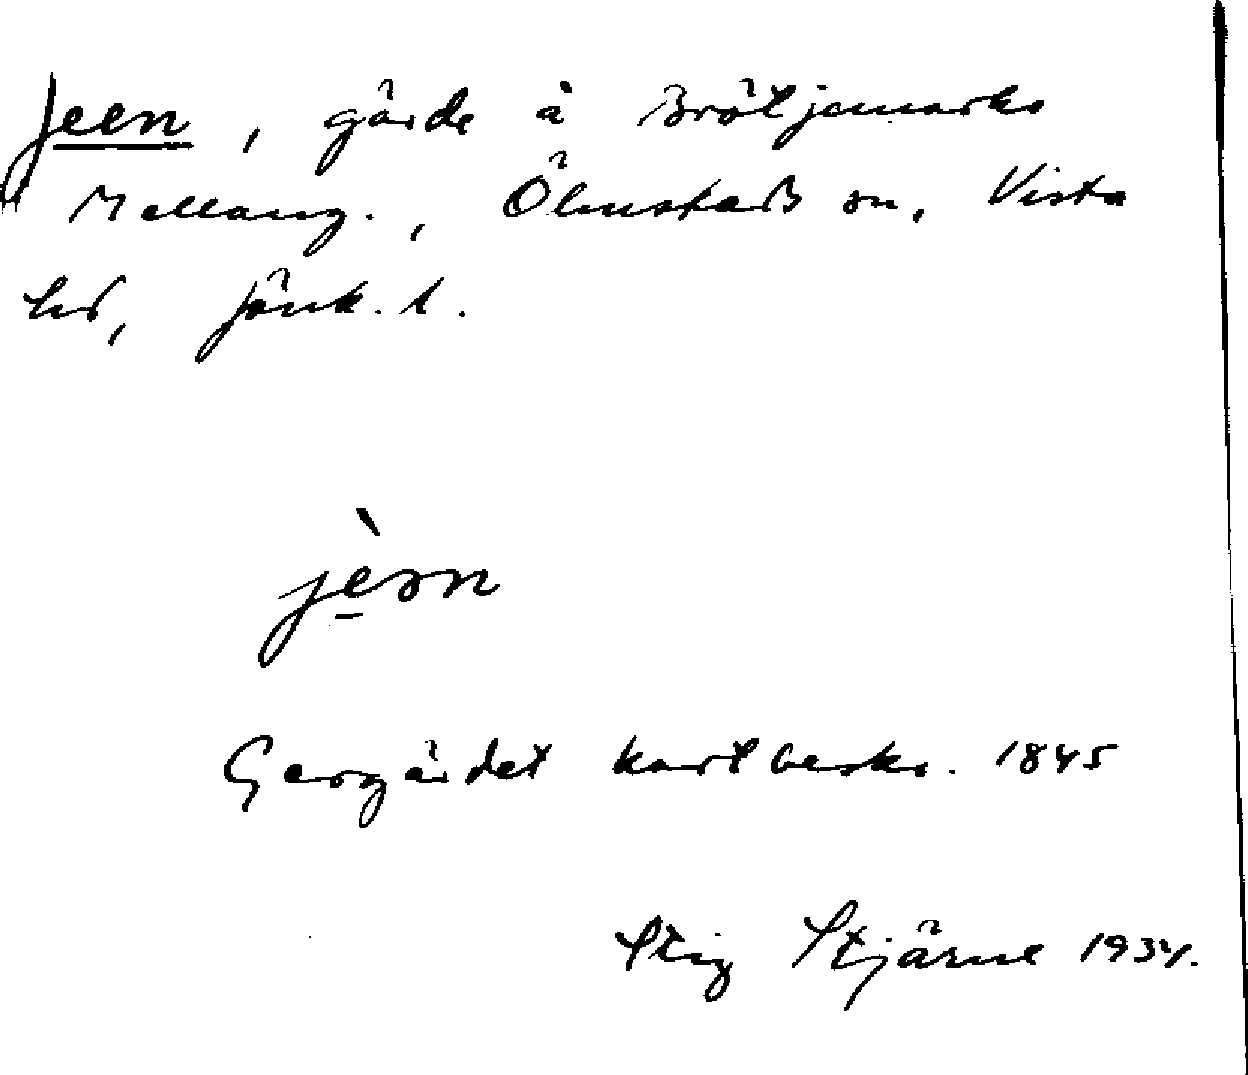 Jeen, gärde å Brötjemarks
Mellang., Ölmstads sn, Vista
hd, Jönk. l.
jèən
Geergärdet kartbeskr. 1845
Stig Stjärne 1934.